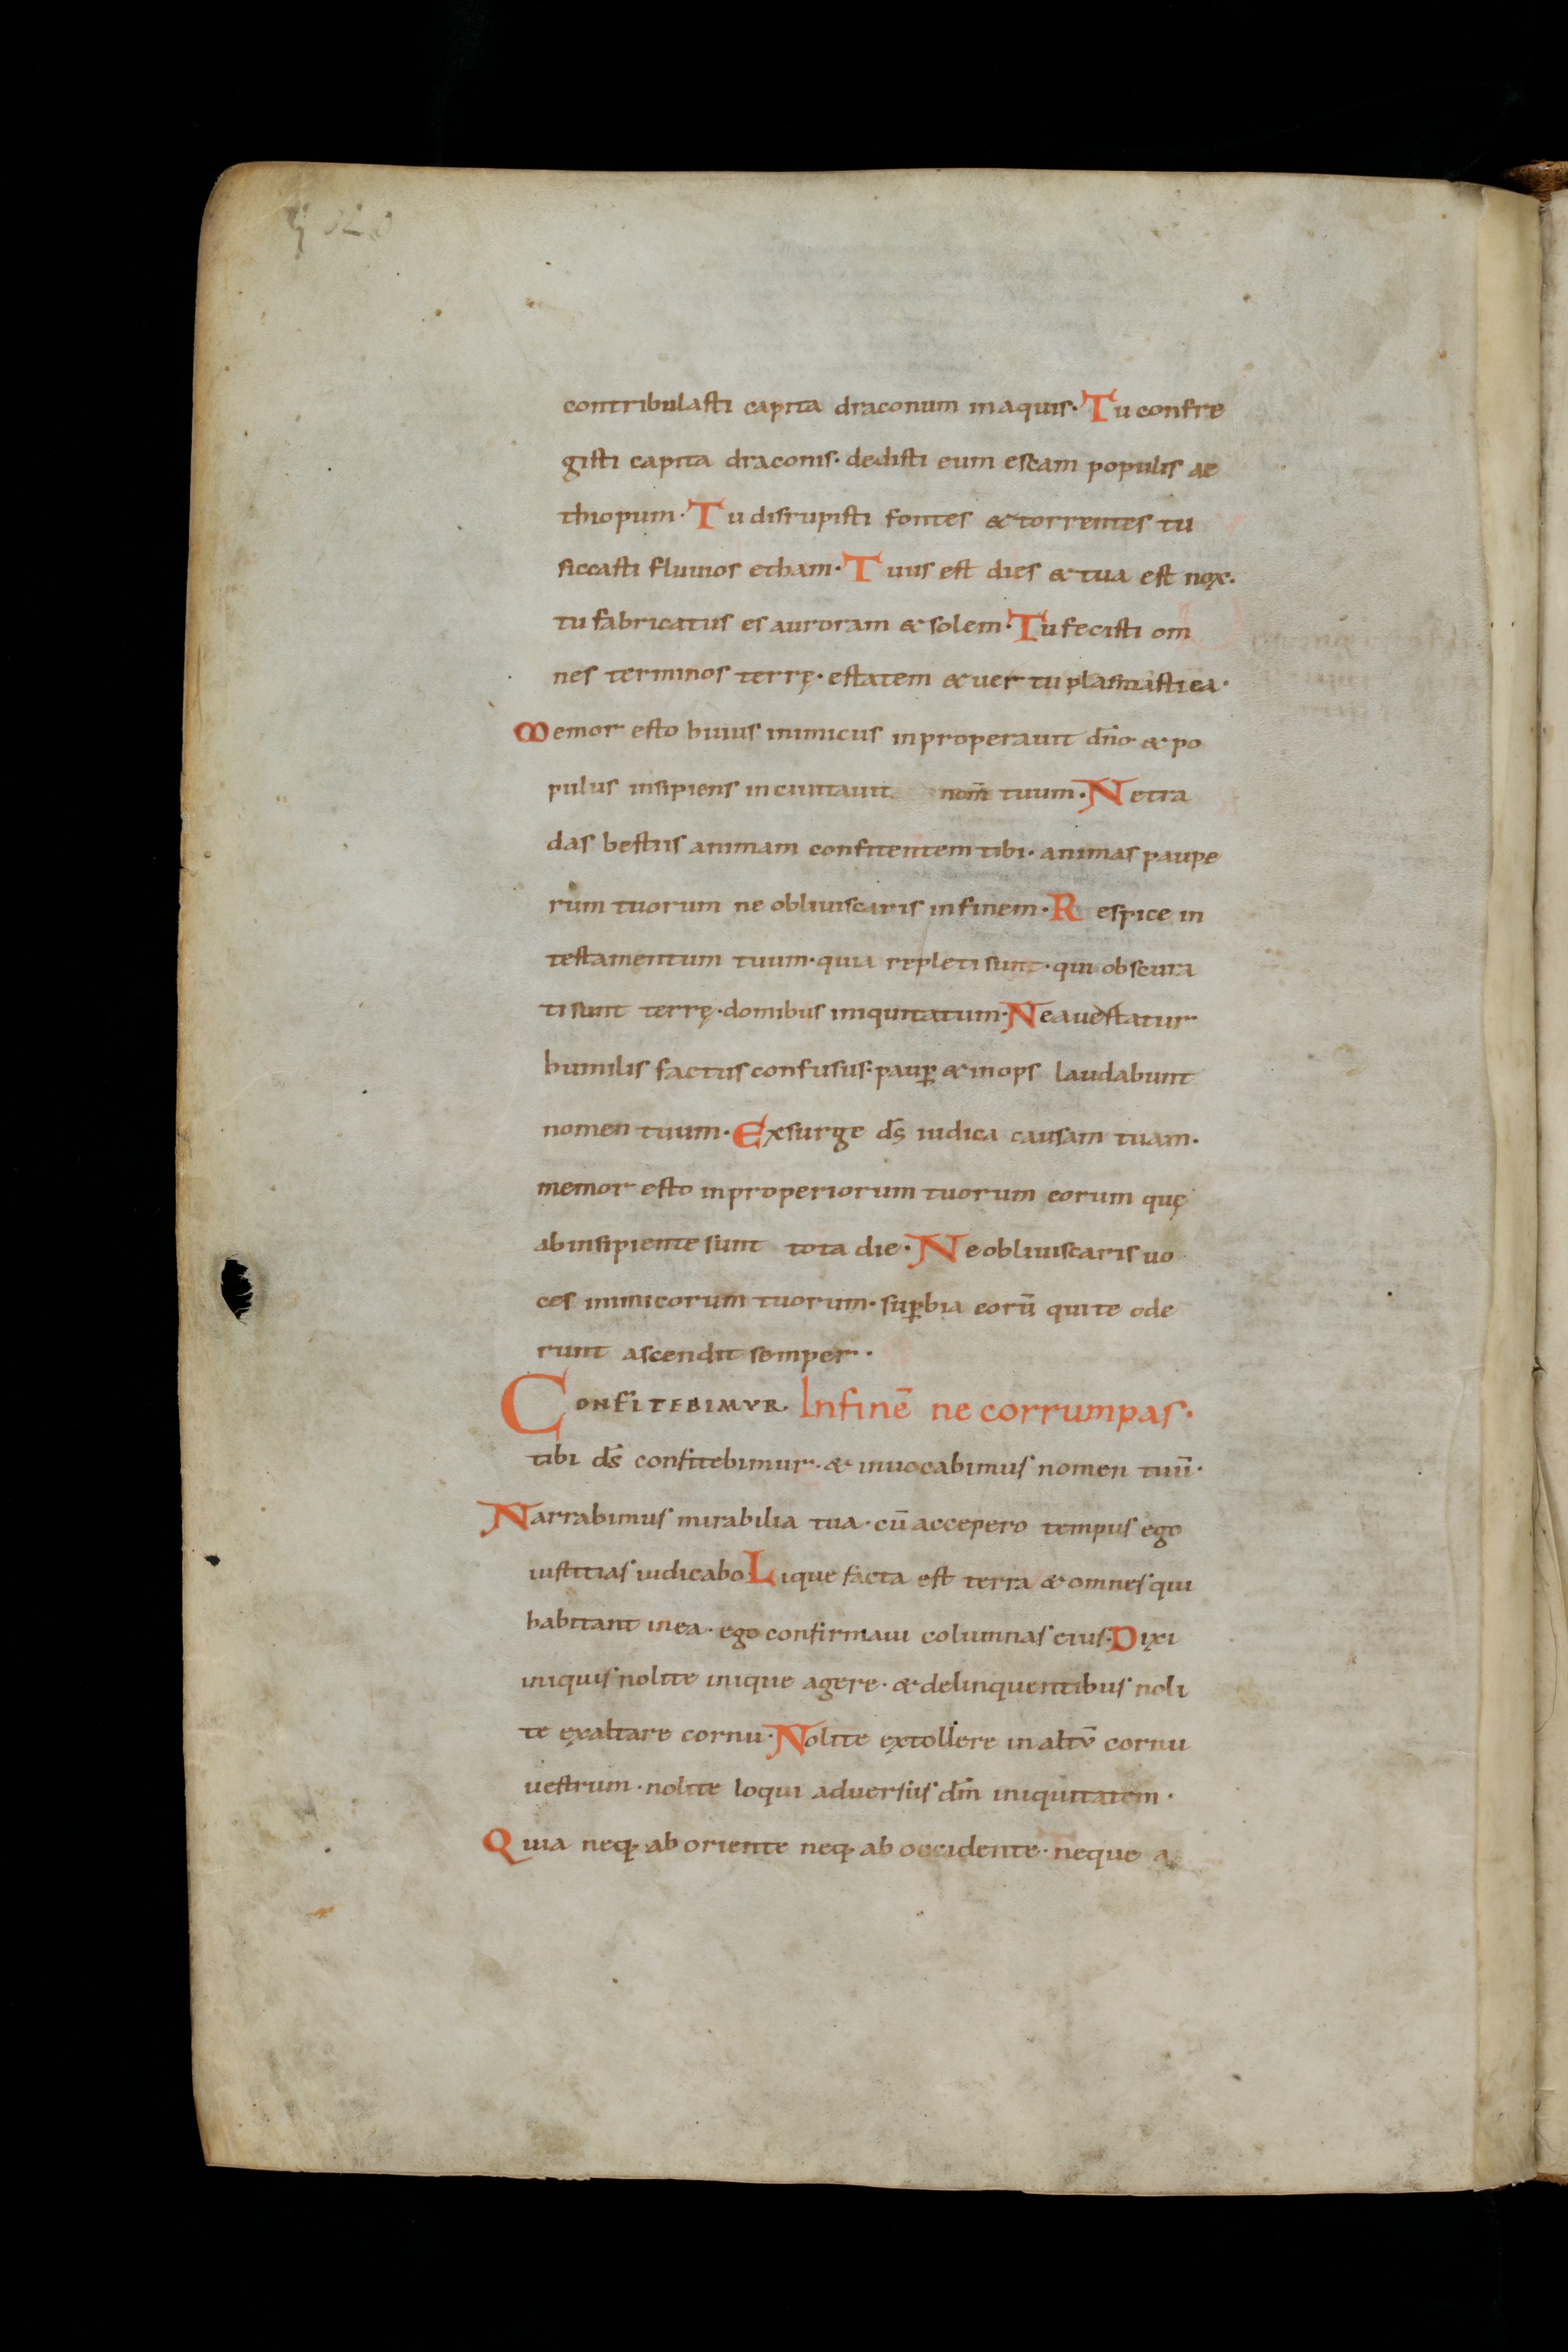 contribulasti capita draconum in aquis· Tu confre
gisti capita draconis· dedisti eum escam populis ae
thiopum· Tu disrupisti fontes & torrentes tu
siccasti fluuios etham· Tuus est dies & tua est nox·
tu fabricatus es auroram & solem· Tu fecisti om
nes terminos terrę· estatem & uer tu plasmasti ea·
Memor esto huius inimicus inproperauit dn̄o & po
pulus insipiens incitauit nom̄ tuum· Ne tra
das bestiis animam confitentem tibi· animas paupe
rum tuorum ne obliuiscaris in finem· Respice in
testamentum tuum· quia repleti sunt· qui obscura
ti sunt terrę· domibus iniquitatum· Ne auertatur
humilis factus confusus: paup̄ & inops laudabunt
nomen tuum· Exsurge ds̄ iudica causam tuam·
memor esto inproperiorum tuorum eorum quę
ab insipiente sunt tota die· Ne obliuiscaris uo
ces inimicorum tuorum· sup̄bia eorū qui te ode
runt ascendit semper·
CONFITEBIMUR· In finē ne corrumpas·
tibi ds̄ confitebimur· & inuocabimus nomen tuū·
Narrabimus mirabilia tua· cū accepero tempus ego
iustitias iudicabo Lique facta est terra & omnes qui
habitant in ea· ego confirmaui columnas eius· Dixi
iniquis nolite inique agere· & delinquentibus noli
te exaltare cornu· Nolite extollere in altū cornu
uestrum· nolite loqui aduersus dm̄ iniquitatem·
Quia neq; ab oriente neq; ab occidente· neque a